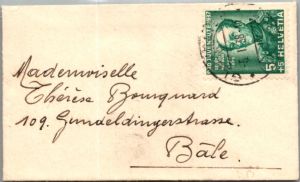 HELVETIA
5+5
Mademoiselle
Thérèse Bourquard
109. Gundeldingerstrasse.
Bâle.